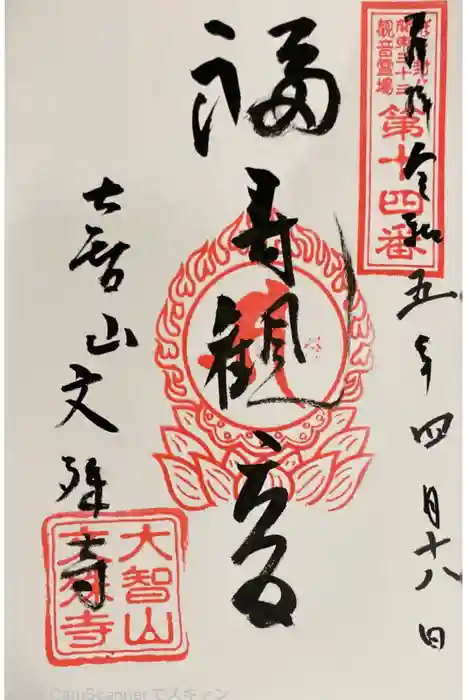 奉拝 令和五年四月十八日
関東三十三
観音霊場
第十四番
福寿観音
大智山文殊寺
大智山
文殊寺
CamScannerでスキャン